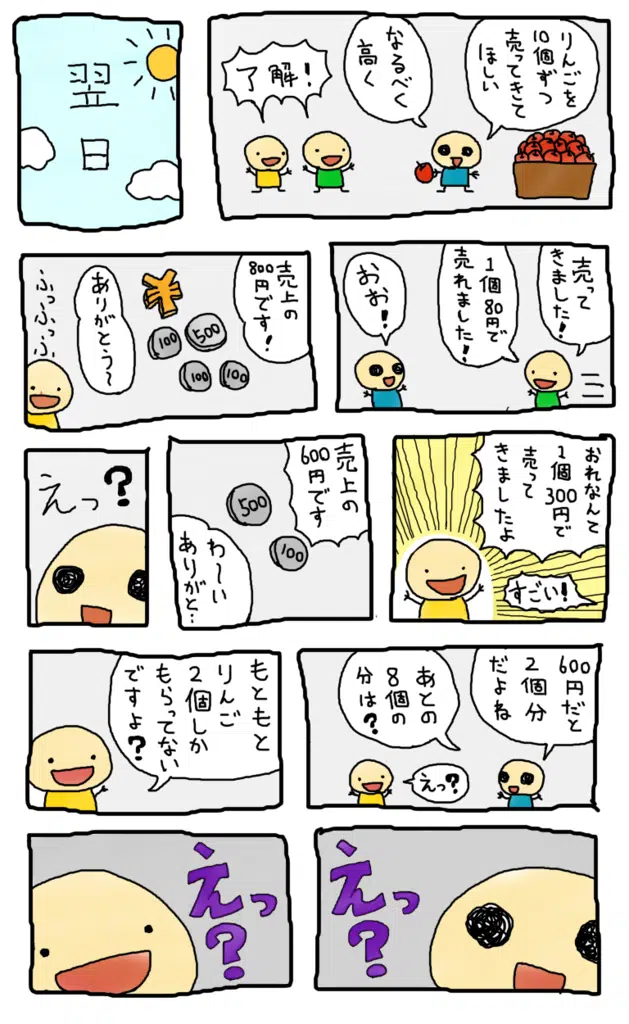 りんごを
10個ずつ
売ってきて
ほしい
なるべく
高く
了解!
翌
日
売って
きました!
1個80円で
売れました!
おぉ!
売上の
800円です!
¥
500
100
100
100
ありがとう〜
ふっふっふ
おれなんて
1個300円で
売って
きましたよ
すごい!
売上の
600円です
500
100
わ〜い
ありがと…
えっ?
600円だと
2個分
だよね
あとの
8個の
分は?
えっ?
もともと
りんご
2個しか
もらってない
ですよ?
えっ?
えっ?